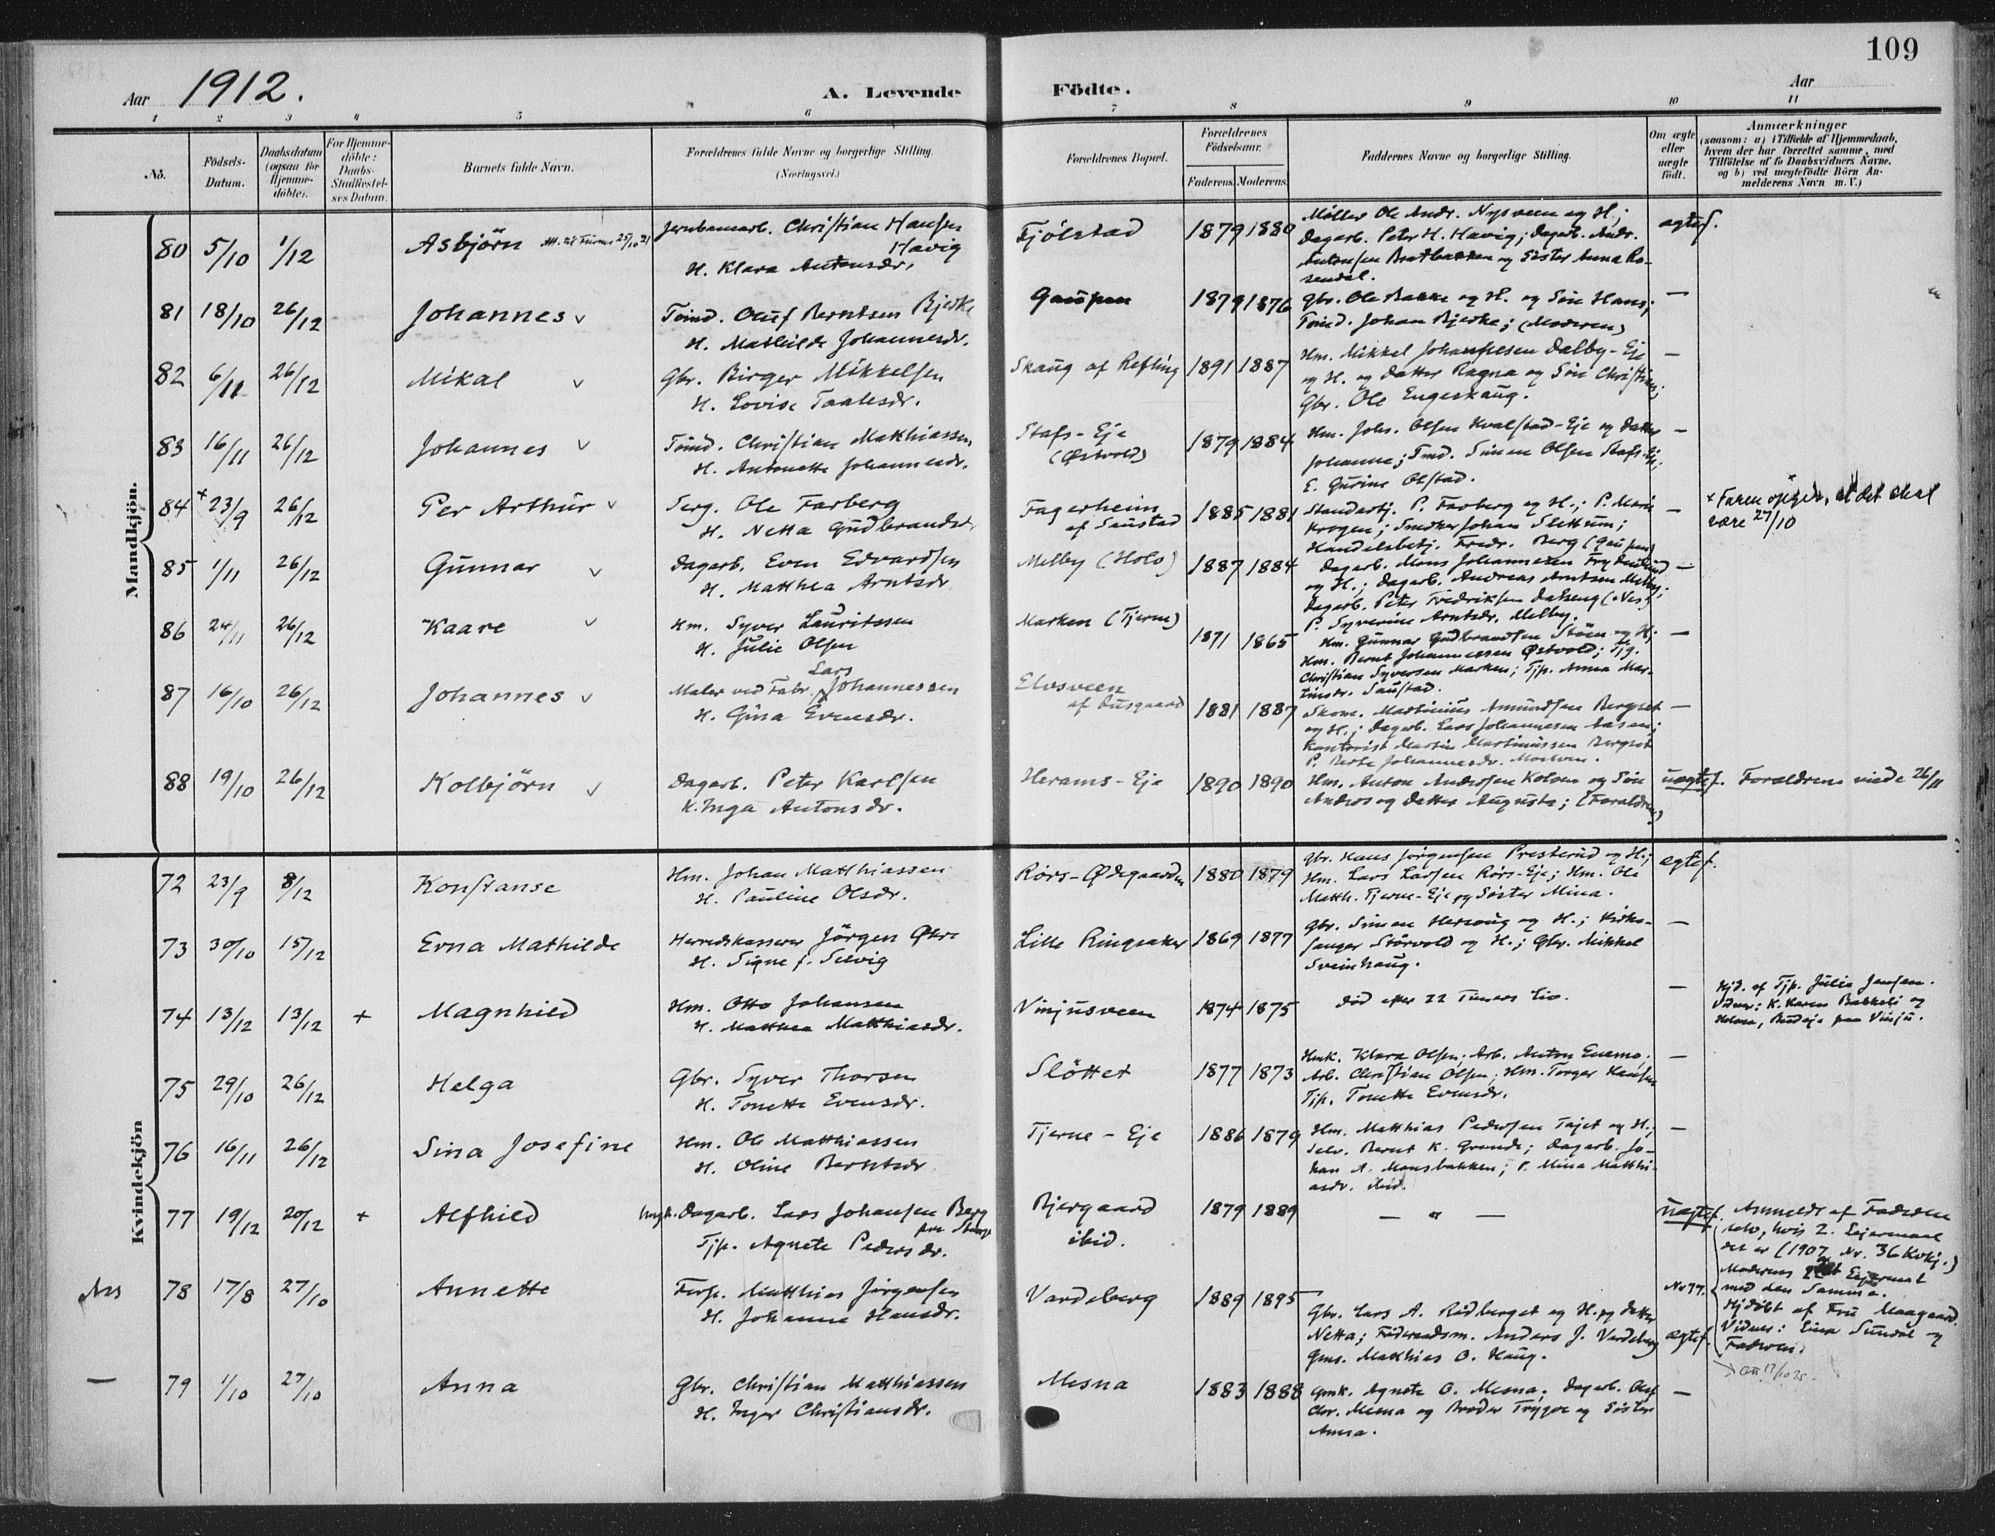 109
Aar 1912.
A. Levende Födte.
Aar
1 2 3 4 5 6 7 8 9 10 11
No.
Födsels-Datum.
Daabsdatum (ogsaa for Hjemme-döbte).
For Hjemme-döbte: Daabs-Stadfæstel-ses Datum.
Barnets fulde Navn.
Forældrenes fulde Navne og borgerlige Stilling. (Næringsvei.)
Forældrenes Bopæl.
Forældrenes Födselsaar.
Faderens. Moderens.
Faddernes Navne og borgerlige Stilling.
Om ægte eller uægte födt.
Anmærkninger
(saasom: a) i Tilfælde af Hjemmedaab, hvem der har forrettet samme, med Tilföielse af to Daabsvidners Navne, og b) ved uægtefödte Börn An-melderens Navn m. V.)
Mandkjön.
80 5/10 1/12 Asbjörn
Jernbanearb. Christian Hansen Havig
H. Klara Antonsdr.
Fjölstad 1879 1880
Möller Ole Andr. Nysveen og H.;
Dagarb. Peter H. Havig; Dagarb. Andr.
Antonsen Bratbakken og Söster Anna Ro-
sendal.
ægtef.
81 18/10 26/12 Johannes
Tömd. Oluf Berntsen Bjerke
H. Mathilde Johannesdr.
Gaupen 1879 1876
Gbr. Ole Bakke og H. og Sön Hans;
Tömd. Johan Bjerke; (Moderen)
—
82 6/11 26/12 Mikal
Gbr. Birger Mikkelsen
H. Lovise Paalesdr.
Skaug af Refling 1891 1887
Hm. Mikkel Johannesen Dalby-Eje
og H. og Datter Ragna og Sön Christian;
Gbr. Ole Engeskaug.
—
83 16/11 26/12 Johannes
Tömd. Christian Matthiassen
H. Antonette Johannesdr.
Stafs-Eje
(Østvold)
1879 1884
Hm. Johs. Olsen Kvalstad-Eje og Datter
Johanne; Tmd. Simen Olsen Stafs-Eje;
E. Gurine Olstad.
—
84 + 23/9 26/12 Per Arthur
Serg. Ole Farberg
H. Netta Gudbrandsdr.
Fagerheim
af Saustad
1885 1881
P. Farberg og H.; P. Marie
Krogen; Snedker Johan Slettum;
Handelsbetj. Fredr. Berg (Gaupen)
—
+ Faren opgir, at det skal
være 27/10
85 1/11 26/12 Gunnar
Dagarb. Even Edvardsen
H. Matthea Arntsdr.
Melby (Hols) 1887 1884
Dagarb. Mons Johannesen
og H.; Dagarb. Andreas Arntsen Melby;
Dagarb. Peter Fredriksen Dalseng (Nes)
P. Syverine Arntsdr. Melby.
—
86 24/11 26/12 Kaare
Hm. Syver Lauritssen
H. Julie Olsen
Marken (Tjerne) 1871 1865
Hm. Gunnar Gudbrandsen Stöen og H;
Hm. Bernt Johannessen Østvold; Tjg.
Christian Syversen Marken; Tjp. Anna Mar-
tinsdr. Saustad.
—
87 16/10 26/12 Johannes
Maler ved Fabr. Lars Johannessen
H. Gina Evensdr.
Elvsveen
af Dusgaard
1881 1887
Skom. Martinius Amundsen Bergset
og H.; Dagarb. Lars Johannesen Aasen;
Kontorist Martin Martiniussen Bergset
P. Berte Johannesdr.
—
88 19/10 26/12 Kolbjörn
Dagarb. Peter Karlsen
K. Inga Antonsdr.
Herams-Eje 1890 1890
Hm. Anton Andersen Kolven og Sön
Anders og Datter Augusta; (Forældrene)
uægtef.
Forældrene viede 26/11
Kvindekjön
72 23/9 8/12 Konstanse
Hm. Johan Matthiassen
H. Pauline Olsdr.
Rörs-Ødegaarden 1880 1879
Gbr. Hans Jörgensen Presterud og H.;
Hm. Lars Larsen Rörs-Eje; Hm. Ole
Matth. Tjerne-Eje og Söster Mina.
ægtef.
73 30/10 15/12 Erna Mathilde
Herredskasserer Jörgen Økre
H. Signe f. Selvig
Lille Ringsaker 1869 1877
Gbr. Simen Hersoug og H.; Kirke-
sanger Störvold og H.; Gbr. Mikkel
Sveinhaug.
—
74 13/12 13/12 + Magnhild
Hm. Otto Johansen
H. Matthea Matthiasdr.
Vinjusveen 1874 1875
Död efter 22 Timers Liv.
—
Hjd. af Tjp. Julie Jensen.
Vidner: K. Karen Bakkeli og
Helene, Budeje paa Vinju.
75 29/10 26/12 Helga
Gbr. Syver Thorsen
H. Tonette Evensdr.
Slöttet 1877 1873
Hmk. Klara Olsen; Arb. Anton Enemo;
Arb. Christian Olsen; Hm. Torger Hansen
Tjp. Tonette Evensdr.
—
76 16/11 26/12 Sina Josefine
Hm. Ole Matthiassen
H. Oline Berntsdr.
Tjerne-Eje 1886 1879
Hm. Matthias Pedersen Tajet og H.;
Selv. Bernt K. Grande; Dagarb. Jo-
han A. Monsbakken; P. Mina Matthi-
asdr. ibid.
—
77 19/12 20/12 + Alfhild
Ungk. Dagarb. Lars Johansen Berg
Tjp. Agnete Pedersdr.
Bjergaard
ibid.
1879 1889
— " —
uægtef.
Anmeldt af Faderen
selv, hvis 2. Leiermaal
det er (1907 Nr. 36 Kvkj.)
Moderens 2det Leiermaal
med den Samme.
No 77.
Hjdöbt af Fru Maagaard.
Vidner: Lina Sundal og
Faderen.
Nes 78 17/8 27/10 Annette
Forp. Matthias Jörgensen
H. Johanne Hansdr.
Vardeberg 1889 1895
Gbr. Lars A. Rudberget og H. og Datter
Netta; Föderaadsm. Anders J. Vardeberg
Gms. Matthias O. Haug.
ægtef.
— 79 1/10 27/10 Anna
Gbr. Christian Matthiassen
H. Inger Christiansdr.
Mesna 1883 1888
Gmk. Agnete O. Mesna; Dagarb. Olaf
Chr. Mesna og Broder Trygve og Söster
Anna.
—